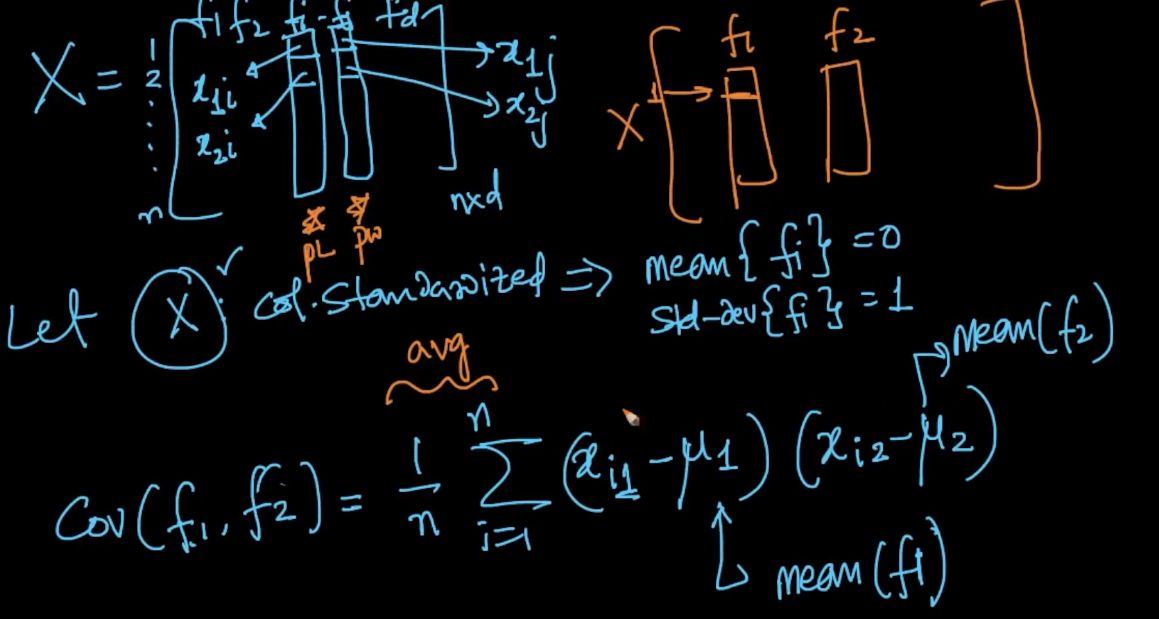 f1 f2 fi - fj fd
X = 1 2 . . . . n
x1i
x2i
x1j
x2j
n×d
pL pw
X 1 f1 f2
Let X : col. Standardized ⇒ mean{fi} = 0
std-dev{fi} = 1
avg
mean(f2)
Cov(f1, f2) = 1/n Σ i=1 n (xi1 - μ1) (xi2 - μ2)
mean(f1)